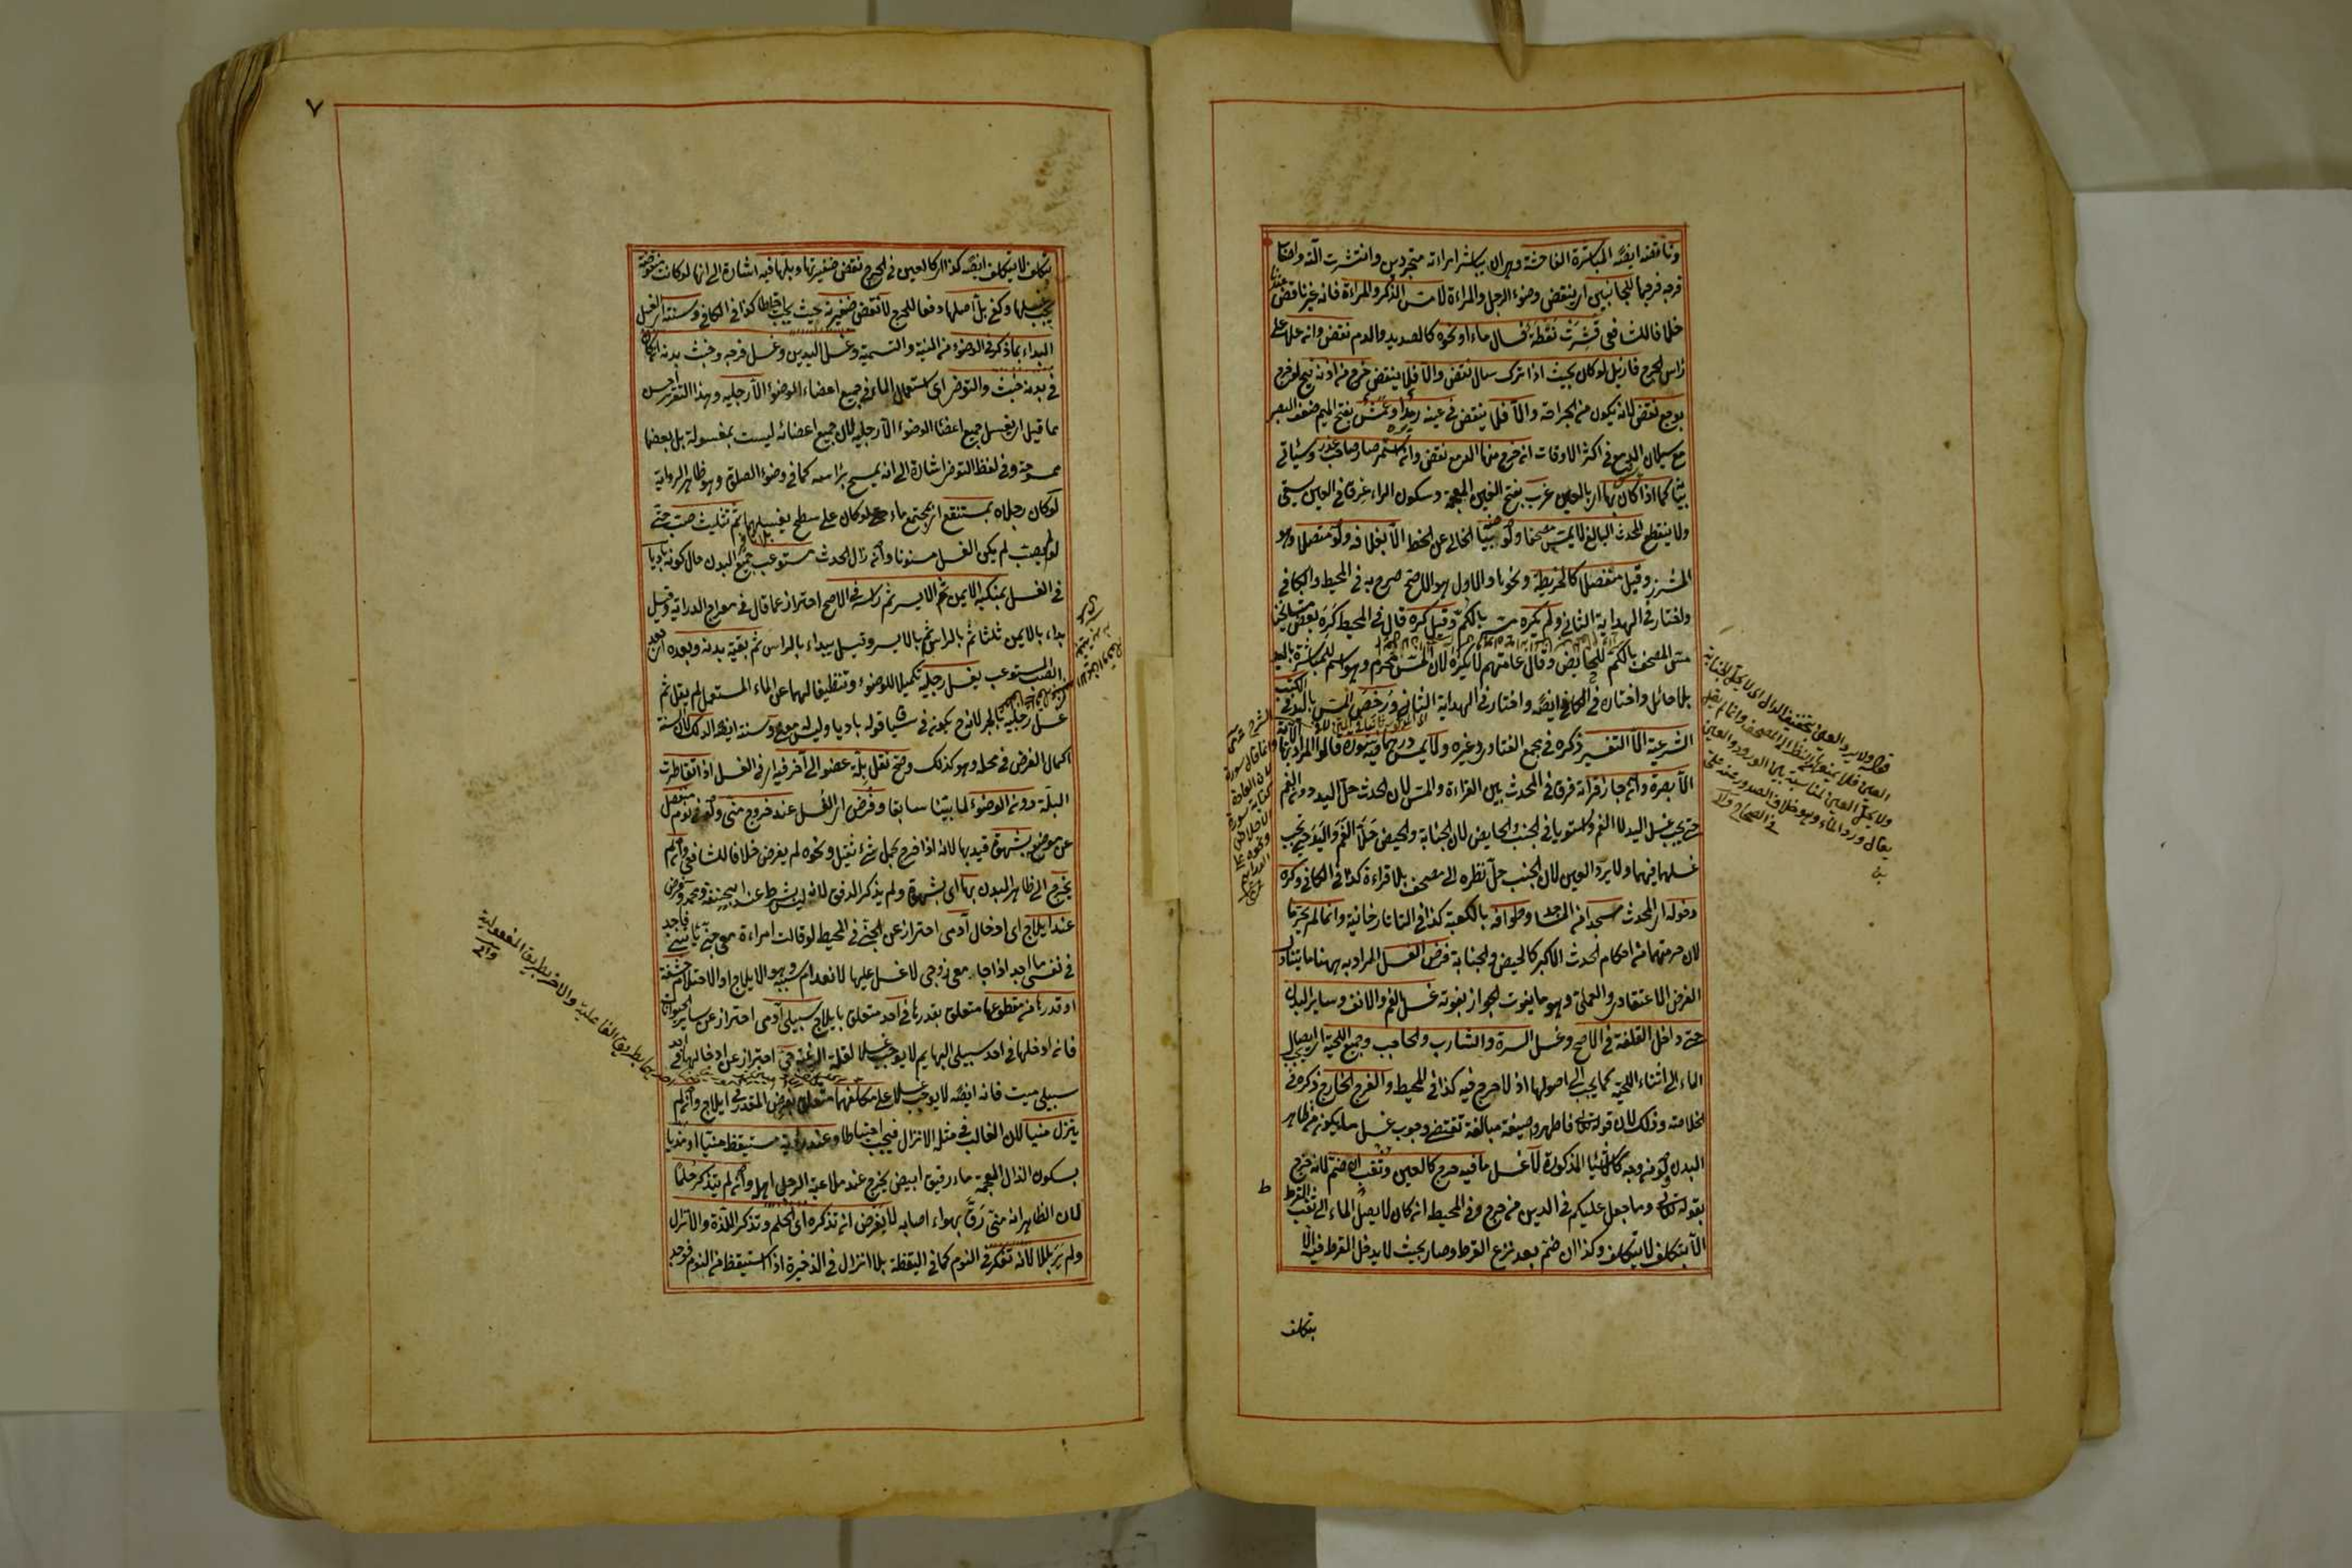 وناقضه ايضا المباشرة الفاحشة وهو ان يباشر امراته متجردين وانتشرت آلته واصاب
فرجه فرجها للجانبين اى ينقض وضوء الرجل والمراءة لا مس الذكر والمراءة فانه غير ناقض عندنا
خلافا للشافعى قشرت نفطة فسال ماء او نحوه كالصديد والدم نقض وان علا على
رأس الجرح فازيل لو كان بحيث اذا ترك سال نقض والا فلا ينقض خرج من اذنه قيح لو خرج
بوجع نقض لانه يكون من الجراحة والا فلا ينقض فى عينه رمد او عمش بفتح الميم ضعف البصر
مع سيلان الدمع فى اكثر الاوقات ان خرج منها الدمع نقض وان استمر صار صاحب عذر وسيأتى
بيانه كما اذا كان بها اى بالعين غرب بفتح الغين المعجمة وسكون الراء عرق فى العين يسقى
ولا ينقطع المحدث البالغ لا يمس مصحفا ولو بياضه الخالى عن الخط الا بغلافه ولو متصلا وهو
المشرز وقيل منفصلا كالخريطة ونحوها والاول هو الاصح صرح به فى المحيط والكافى
واختار فى الهداية الثانى ولم يكره مسه بالكم وقيل كره قال فى المحيط كره بعض مشايخنا
مس المصحف بالكم للحايض وقال عامتهم لا يكره لان المس محرم وهو اسم للمباشرة باليد
بلا حائل واختاره فى الكافى ايضا واختار فى الهداية الثانى ورخص المس باليد فى الكتب
الشرعية الا التفسير ذكره فى مجمع الفتاوى وغيره ولا يمس درهما فيه سورة قالوا المراد بها الآية
الا بصرة وان جاز قرأته فرقا فى المحدث بين القراءة والمس لان الحدث حل اليد دون الفم
حتى يجب غسل اليد لا الفم واستويا فى الجنب والحايض لان الجنابة والحيض حلا الفم واليد حتى يجب
غسلها فيهما ولا يرد العين لان الجنب حل نظره الى مصحف بلا قراءة كذا فى الكافى وكره
دخوله اى المحدث مسجدا من المساجد وطوافه بالكعبة كذا فى التاتارخانية وانما لم يحرما
لان حرمتهما من احكام الحدث الاكبر كالحيض والجنابة فرض الغسل المراد به ههنا ما يتناول
الفرض الاعتقادى والعملى وهو ما يفوت الجواز بفوته غسل الفم والانف وساير البدن
حتى داخل القلفة فى الاصح وغسل السرة والشارب والحاجب وجميع اللحية اى ايصال
الماء الى اثناء اللحية كما يجب الى اصولها اذ لا حرج فيه كذا فى المحيط والفرج الخارج ذكره فى
الخلاصة وذلك لان قوله تعالى فاطهروا صيغة مبالغة تقتضى وجوب غسل ما يكون من ظاهر
البدن ولو من وجه كالاشياء المذكورة لا غسل ما فيه حرج كالعين وثقب انضم لانه حرج
بقوله تعالى وما جعل عليكم فى الدين من حرج وفى المحيط ان كان لا يصل الماء الى ثقب القرط
الا بتكلف لا يتكلف وكذا ان ضم بعد نزع القرط وصار بحيث لا يدخل القرط فيه الا
بتكلف
٧
بتكلف لا يتكلف ايضا كذا اى كالعين فى الحرج نقض ضفيرتها وبلها فيه اشارة الى انها لو كانت منقوضة
يجب غسلها وكفى بل اصلها دفعا للحرج لا نقض ضفيرته بحيث يجب احتياطا كذا فى الكافى وسنته اى الغسل
البداء بما ذكر فى الوضوء من النية والتسمية وغسل اليدين وغسل فرجه وخبث بدنه ان كان
فى بدنه خبث والتوضى اى استعمال الماء فى جميع اعضاء الوضوء الا رجليه وهذا التقرير احسن
مما قيل اى يغسل جميع اعضاء الوضوء الا رجليه لان جميع اعضائه ليست بمغسولة بل بعضها
ممسوحة وفى لفظ التوضى اشارة الى انه يمسح برأسه كما فى وضوء الصلوة وهو ظاهر الرواية
لو كان رجلاه بمستنقع اى مجتمع ماء حتى لو كان على سطح يغسلهما ثم تثليث صب حتى
لو لم يصب لم يكن الغسل مسنونا وان زال الحدث مستوعب جميع البدن حال كونه باديا
فى الغسل بمنكبه الايمن ثم الايسر ثم رأسه فى الاصح احتراز عما قال فى معراج الدراية وقيل
يبداء بالايمن ثلثا ثم بالرأس ثم بالايسر وقيل يبداء بالرأس ثم بقية بدنه وبعده اى بعد
الصب المستوعب يغسل رجليه تكميلا للوضوء وتنظيفا لهما عن الماء المستعمل لم يقل ثم
غسل رجليه بالجر لانه ح يكون فى سياق قوله باديا وليس معه وسنته ايضا الدلك لان السنة
اكمال الفرض فى محله وهو كذلك وصح نقل بلة عضو الى آخر فيه اى فى الغسل اذا تقاطرت
البلة دون الوضوء لما بيننا سابقا وفرض اى الغسل عند خروج منى ولو فى نوم منفصل
عن موضعه بشهوة قيد بها لانه اذا خرج بحمل شىء ثقيل ونحوه لم يفرض خلافا للشافعى وان لم
يخرج الى ظاهر البدن بها اى بشهوة ولم يذكر الدفق لانه ليس بشرط عند ابى حنيفة ومحمد وفرض
عند ايلاج اى ادخال آدمى احتراز عن الجنى فى المحيط لو قالت امراءة معى جنى يأتينى فاجد
فى نفسى ما اجد اذا جامعنى زوجى لا غسل عليها لانعدام سببه وهو الايلاج او الاحتلام حشفة
او قدرها من مقطوعها متعلق بقدرها فى احد متعلق بايلاج سبيلى آدمى احتراز عن ساير الحيوان
فانه ادخلها فى احد سبيلى البهايم لا يوجب غسلا لقلة الرغبة حى احتراز عن ادخالها فى احد
سبيلى ميت فانه ايضا لا يوجب غسلا على مكلفهما متعلق بفرض المقدر فى ايلاج وان لم
ينزل منيا لان الغالب فى مثله الانزال فيجب احتياطا وعند رؤية مستيقظ منيا او مذيا
بسكون الذال المعجمة ماء رقيق ابيض يخرج عند ملاعبة الرجل اهله وان لم يتذكر حلما
لان الظاهر انه منى رق بهواء اصابه لا يفرض ان تذكره اى الحلم وتذكر اللذة والانزال
ولم ير بللا لانه تفكر فى النوم كما فى اليقظة بلا انزال فى الذخيرة اذا استيقظ من النوم فوجد